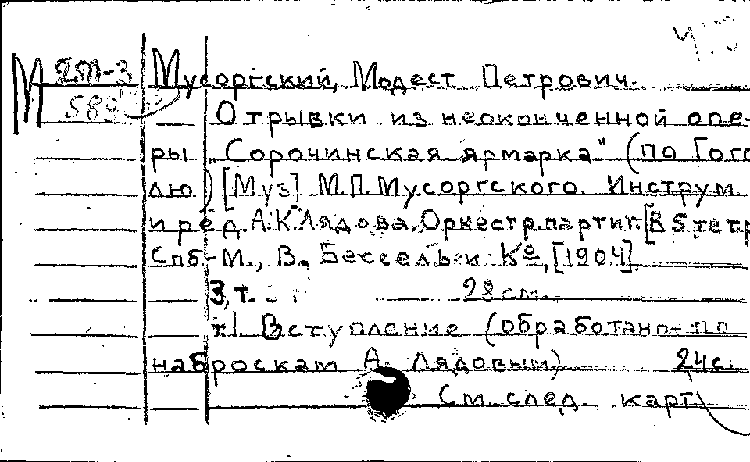 М 2М-3 Мусоргский, Модест Петрович.
589 Отрывки из неоконченной опе-
ры "Сорочинская ярмарка" (по Гого
лю) [Муз] М.П.Мусоргского. Инструм.
и ред. А.К.Лядова. Оркестр.партит. [В 5 тетр
Спб-М., В. Бессель и Кº, [1904]
3, т. 28 см.
т.I Вступление (обработано по
наброскам А. Лядовым) 24с.
См. след. карт